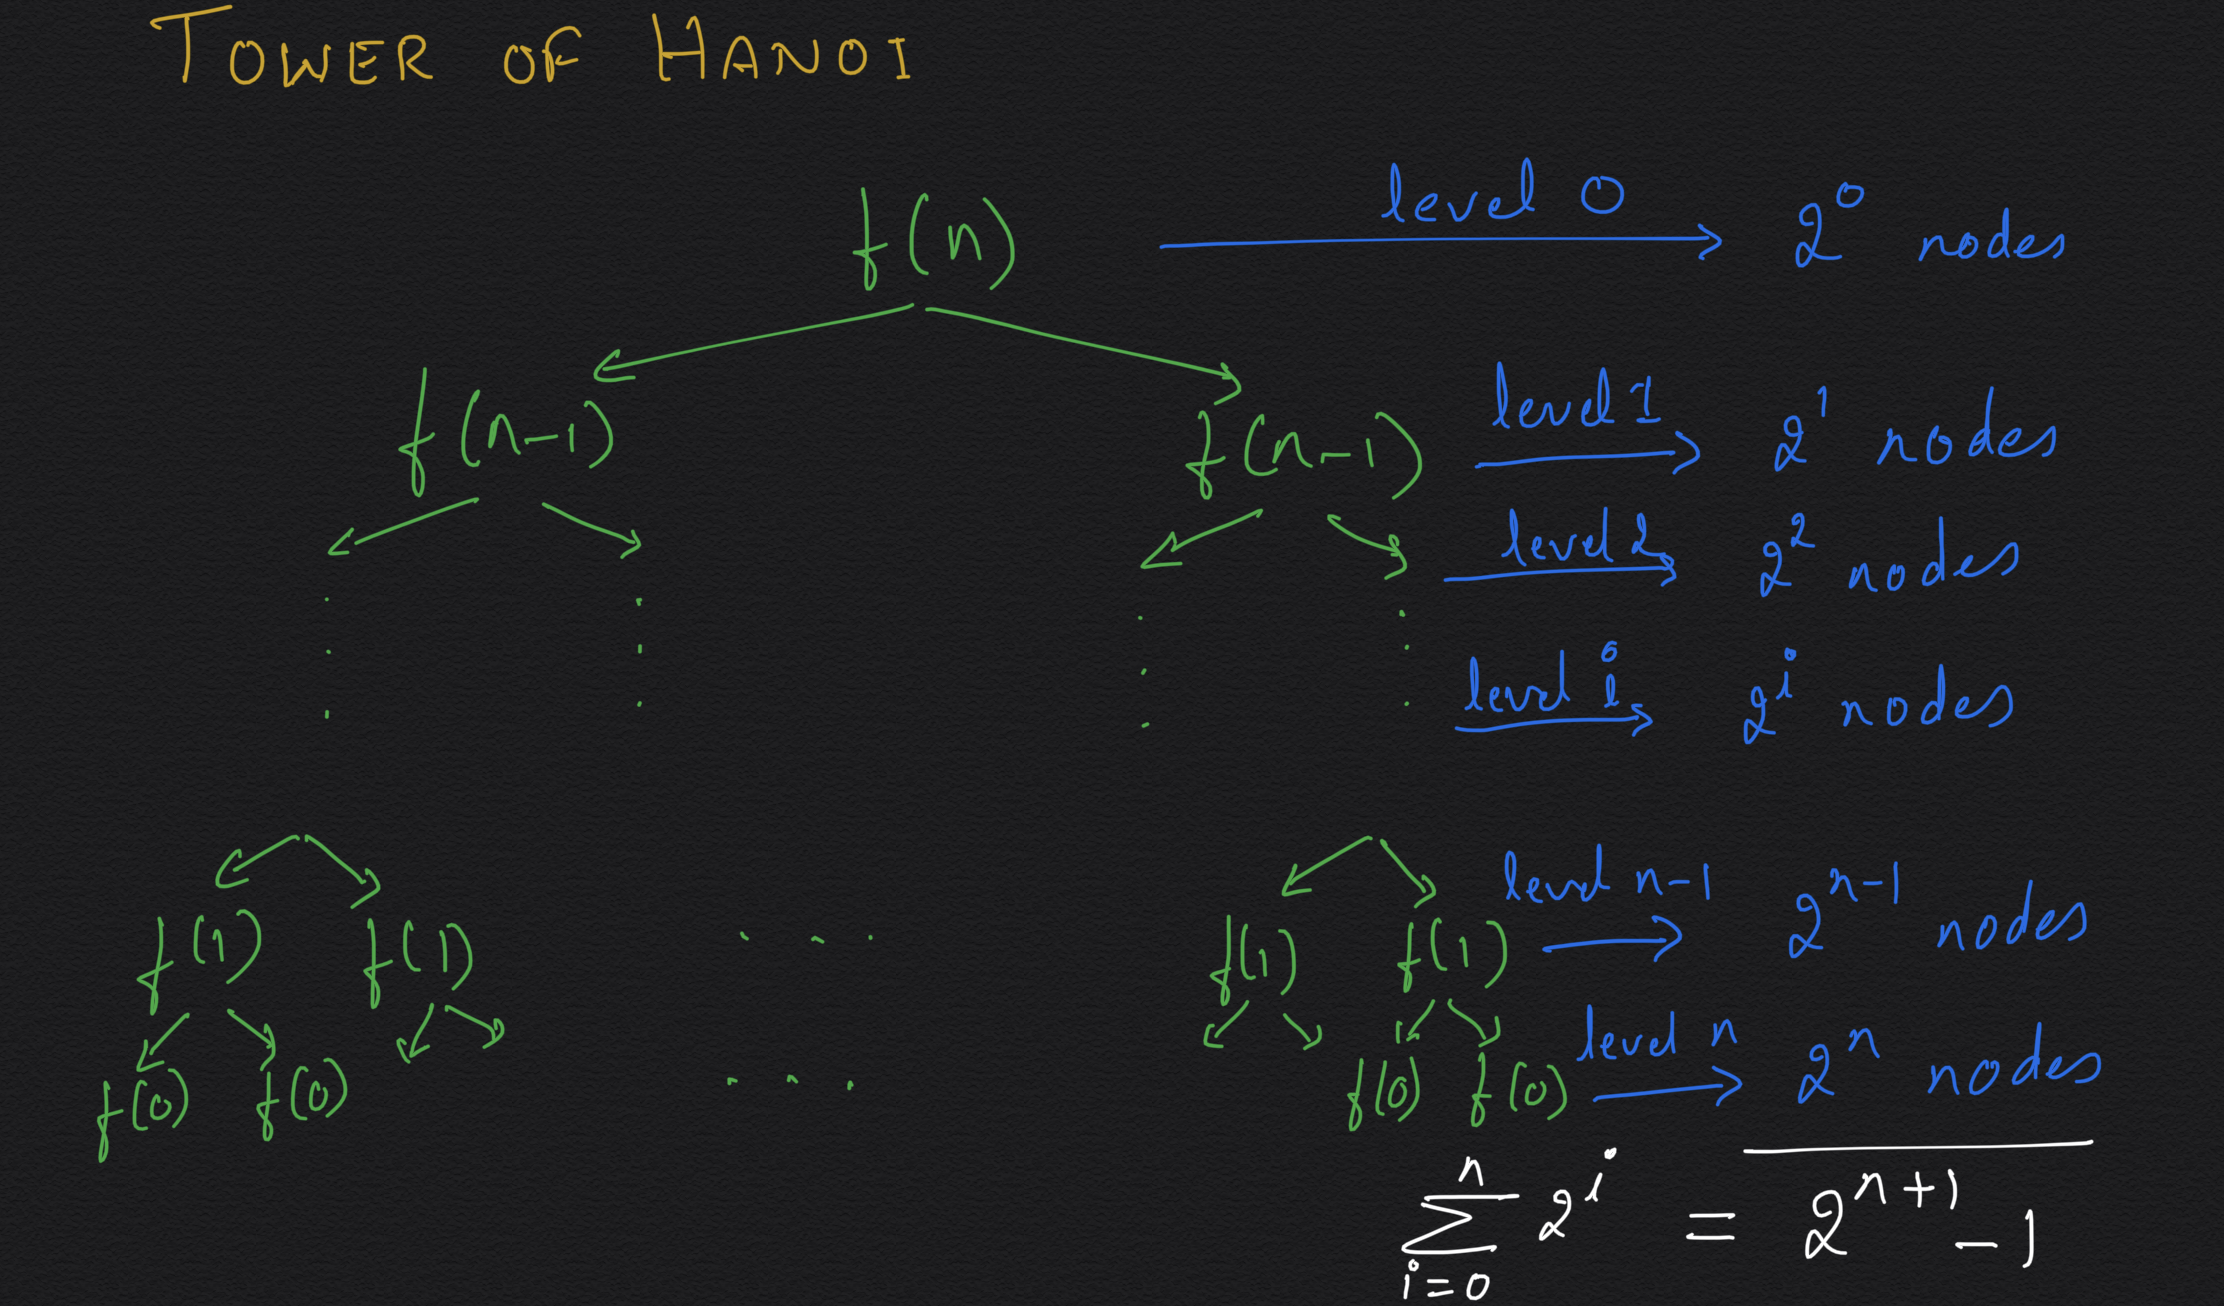 TOWER OF HANOI
f(n) level 0 2^0 nodes
f(n-1) f(n-1) level 1 2^1 nodes
level 2 2^2 nodes
level i 2^i nodes
f(1) f(1) . . . f(1) f(1) level n-1 2^{n-1} nodes
f(0) f(0) . . . f(0) f(0) level n 2^n nodes
∑_{i=0}^{n} 2^i = 2^{n+1} - 1